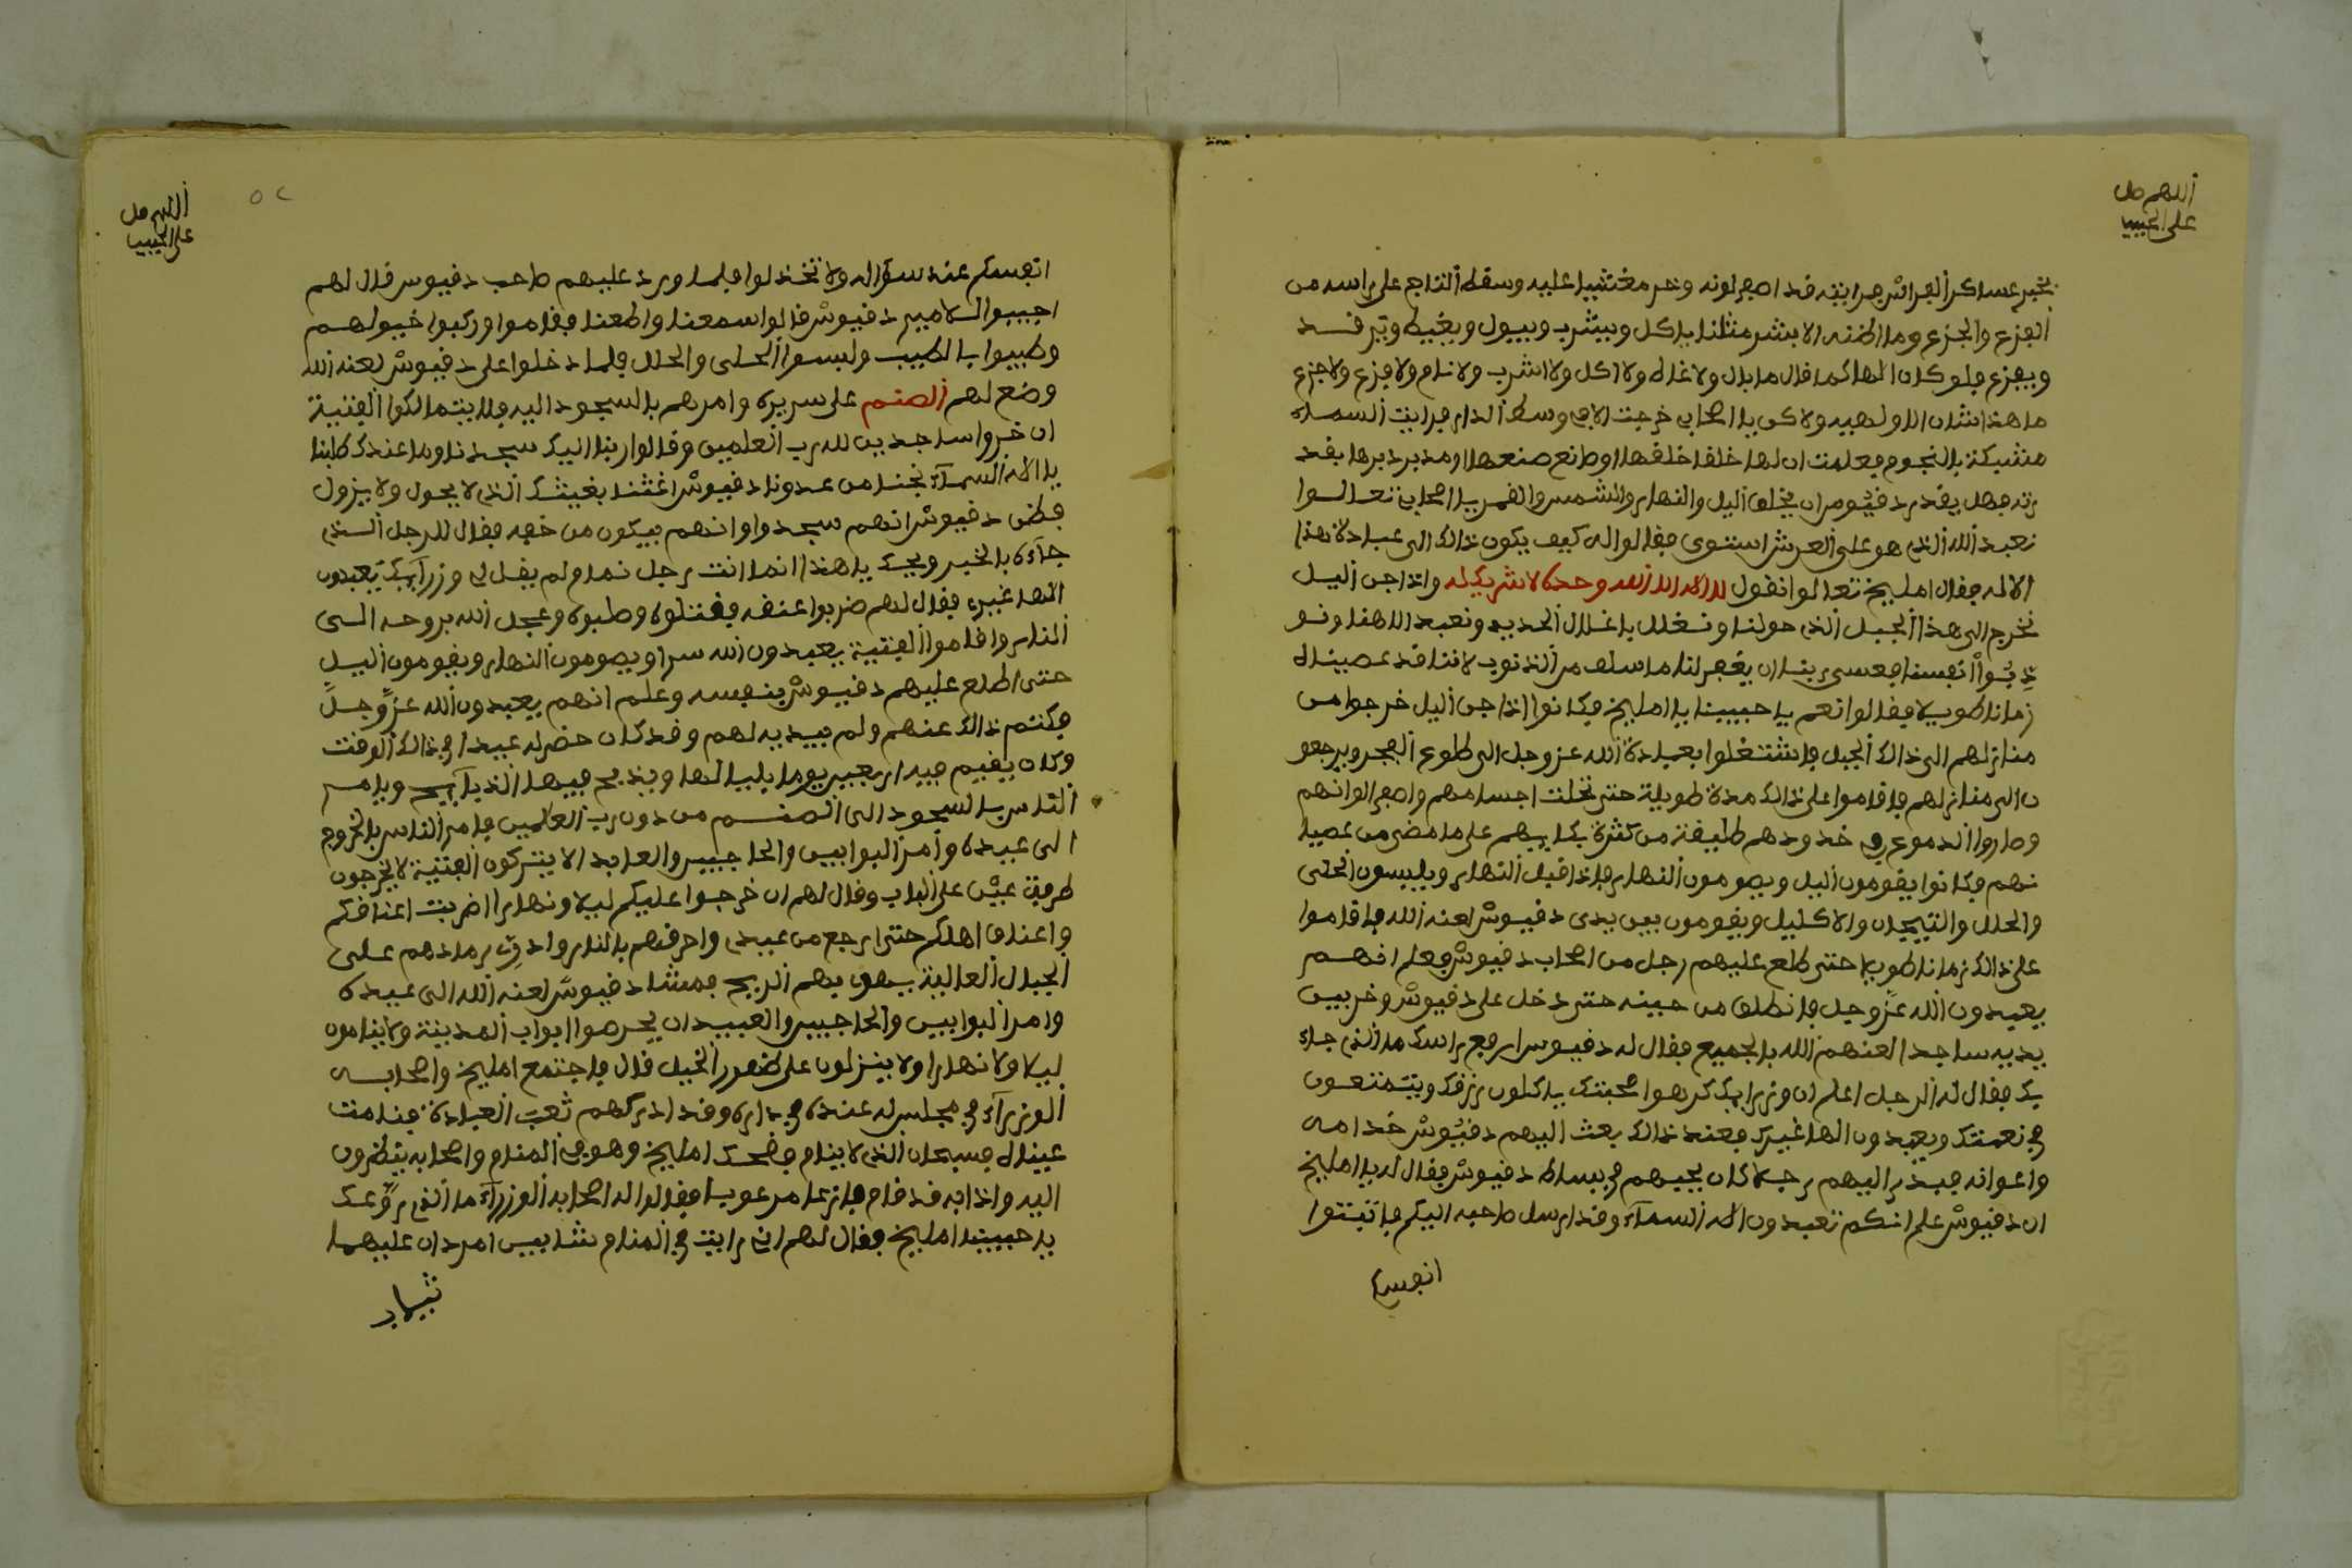 اللهم صل
على الحبيب
بخبر عساكر الفرس فرايته قد اصفر لونه وخر مغشيا عليه وسقط التاج على راسه من
الفزع والجزع وما اظنه الا بشر مثلنا ياكل ويشرب ويبول ويغيط ويرقد
ويفزع فلو كان الها كما قال ما بال ولا غاط ولا اكل ولا اشرب ولا نام ولا فزع ولا جزع
ما هذا شان الالوهية ولاكن يا اصحابي خرجت الى وسط الدار فرايت السماء
مشبكة بالنجوم فعلمت ان لها خلقا خلقها او صانع صنعها او مدبر دبرها بقد
رته فهل يقدر دقيوس ان يخلق اليل والنهار والشمس والقمر يا اصحابي تعالوا
نعبد الله الذي هو على العرش استوى فقالوا له كيف يكون ذالك الى عبادة هذا
الاله فقال امليخ تعالوا نقول لا اله الا الله وحده لا شريك له واذا جن اليل
نخرج الى هذا الجبل الذي حولنا ونغلل باغلال الحديد ونعبد الاهنا ونو
بوا انفسنا فعسى ربنا ان يغفر لنا ما سلف من الذنوب لاننا قد عصيناه
زمانا طويلا فقالوا نعم يا حبيبنا يا امليخ فكانوا اذا جن اليل خرجوا من
منازلهم الى ذالك الجبل فاشتغلوا بعبادة الله عز وجل الى طلوع الفجر ويرجعو
ن الى منازلهم فاقاموا على ذالك مدة طويلة حتى نحلت اجسامهم واصفر الوانهم
وصاروا الدموع في خدودهم من كثرة بكايهم على ما مضى من عصيا
نهم فكانوا يقومون اليل ويصومون النهار فاذا قبل النهار ويلبسون الحلي
والحلل والتيجان والاكليل ويقومون بين يدى دقيوس لعنه الله فاقاموا
على ذالك زمانا طويلا حتى طلع عليهم رجل من اصحاب دقيوس فعلم انهم
يعبدون الله عز وجل فانطلق من حينه حتى دخل على دقيوس وخر بين
يديه ساجدا لعنهم الله بالجميع فقال له دقيوس ارفع راسك ما الذي جاء
بك فقال له الرجل اعلم ان وزرايك كرهوا صحبتك ياكلون رزقك ويتمتعون
في نعمتك ويعبدون الها غيرك فعند ذالك بعث اليهم دقيوس خدامه
واعوانه فبدر اليهم رجلا كان يحبهم في بساط دقيوس فقال له يا امليخ
ان دقيوس علم انكم تعبدون اله السماء وقد ارسل صاحبه اليكم فاثبتوا
انفسكم
اللهم صل
على الحبيب
٥٢
انفسكم عند سؤاله ولا تخذلوا فلما ورد عليهم صاحب دقيوس قال لهم
اجيبوا الامير دقيوس قالوا سمعنا واطعنا فقاموا وركبوا خيولهم
وطيبوا بالطيب ولبسوا الحلى والحلل فلما دخلوا على دقيوس لعنه الله
وضع لهم الصنم على سريره وامرهم بالسجود اليه فلا يتمالكوا الفتية
ان خروا ساجدين لله رب العلمين وقالوا ربنا اليك سجدنا وما عندك طلبنا
يا اله السماء نجنا من عدونا دقيوس اغثنا بغيثك الذي لا يحول ولا يزول
فظن دقيوس انهم سجدوا وانهم يبكون من خوفه فقال للرجل الذي
جاءه بالخبر ويحك يا هذا انما انت رجل نمام ولم يقل لي وزرايك يعبدون
الها غيره فقال لهم ضربوا عنقه فقتلوه وصلبوه وعجل الله بروحه الى
النار واقاموا الفتية يعبدون الله سرا ويصومون النهار ويقومون اليل
حتى اطلع عليهم دقيوس بنفسه وعلم انهم يعبدون الله عز وجل
فكتم ذالك عنهم ولم يبديه لهم وقد كان حضر له عيدا في ذالك الوقت
وكان يقيم فيه اربعين يوما بلياليها ويذبح فيها الذبايح ويامر
الناس بالسجود الى الصنم من دون رب العالمين فامر الناس بالخروج
الى عيده وامر البوابين والحاجبين والعابد الا يتركون الفتية لا يخرجون
طرفة عين على الباب وقال لهم ان خرجوا عليكم ليلا ونهارا اضربت اعناقكم
واعناق اهلكم حتى ارجع من عيدي واحرقهم بالنار وادق رمادهم على
الجبال العالية يهوى بهم الريح فمشا دقيوس لعنه الله الى عيده
وامر البوابين والحاجبين والعبيد ان يحرصوا ابواب المدينة ولا يناموا
ليلا ولا نهارا ولا ينزلون على ضهور الخيل قال فاجتمع امليخ واصحابه
الوزراء في مجلس له عنده في داره وقد ادركهم تعب العبادة فنامت
عيناه فسبحان الذي لا ينام فضحك امليخ وهو في المنام واصحابه ينظرون
اليه واذا به قد قام فازعا مرعوبا فقالوا له اصحابه الوزراء ما الذي روعك
يا حبيبنا امليخ فقال لهم اني رايت في المنام شابين امردان عليهما
ثياب